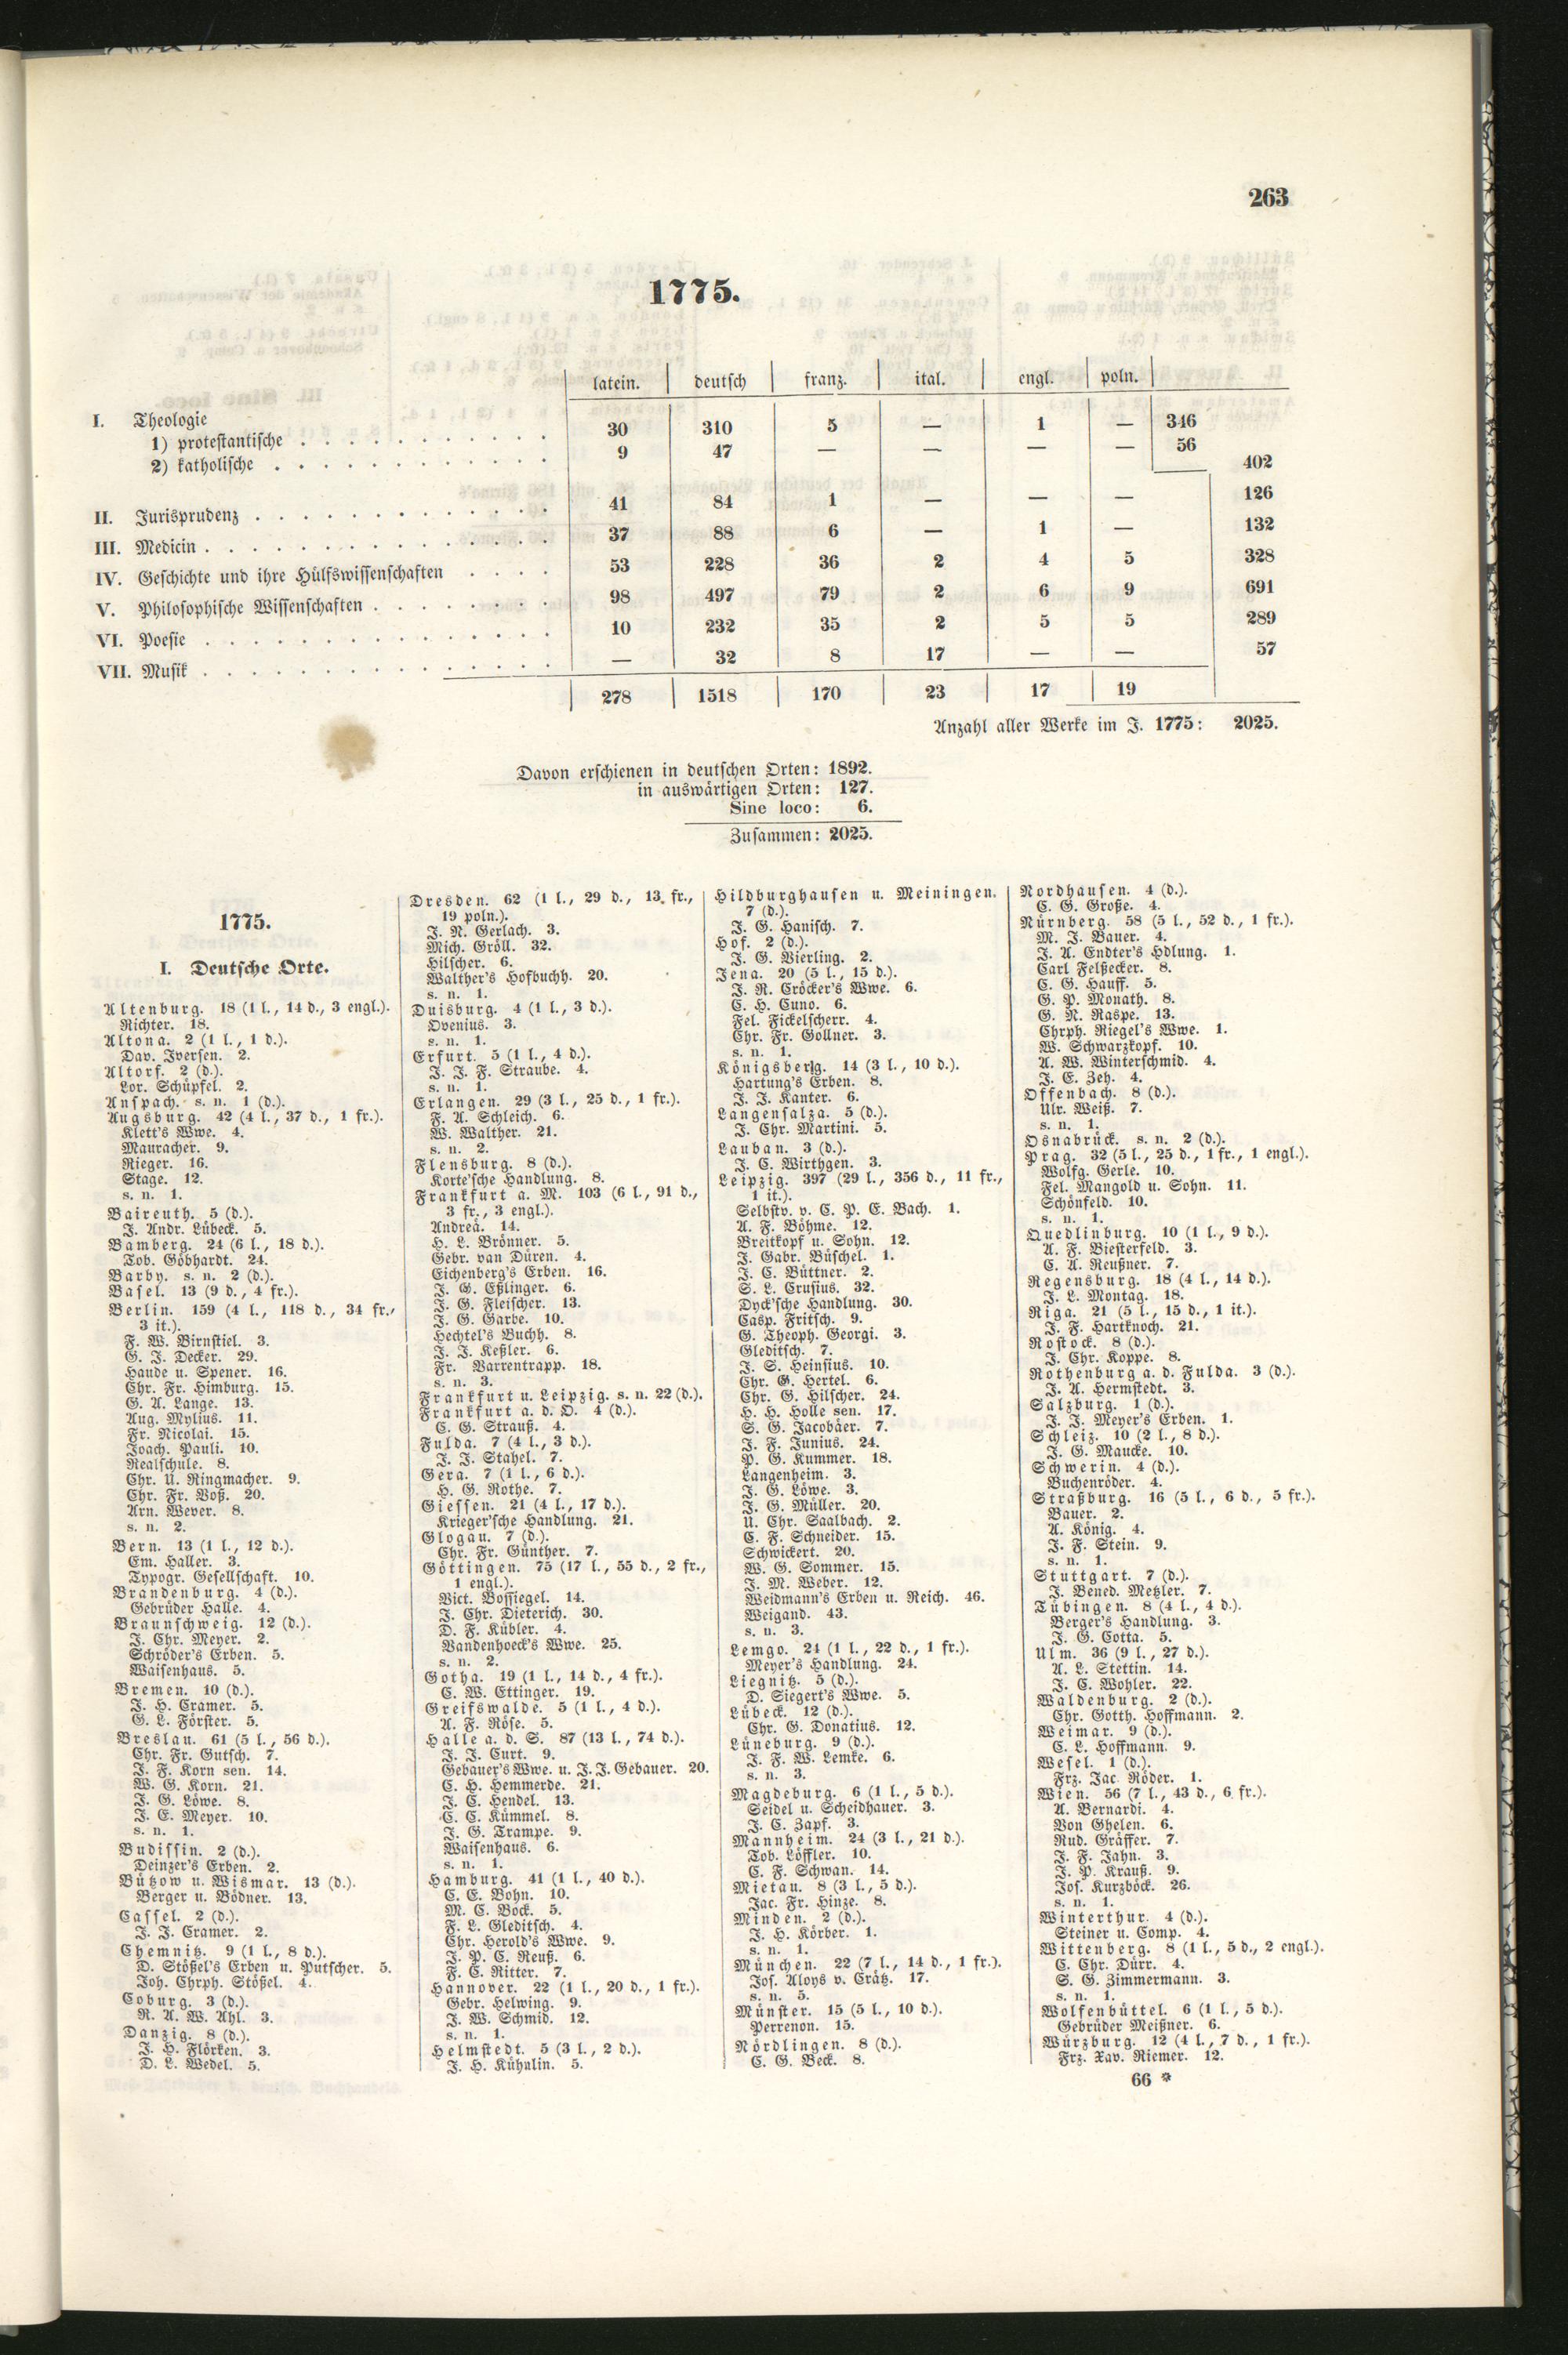 263
1775.
latein. deutsch franz. ital. engl. poln.
I. Theologie
1) protestantische . . . . . . . . . . . 30 310 5 — 1 — 346
2) katholische . . . . . . . . . . . . 9 47 — — — — 56
402
II. Jurisprudenz . . . . . . . . . . . . . 41 84 1 — — — 126
III. Medicin . . . . . . . . . . . . . . . 37 88 6 — 1 — 132
IV. Geschichte und ihre Hülfswissenschaften . . . . 53 228 36 2 4 5 328
V. Philosophische Wissenschaften . . . . . . . . 98 497 79 2 6 9 691
VI. Poesie . . . . . . . . . . . . . . . 10 232 35 2 5 5 289
VII. Musik . . . . . . . . . . . . . . . — 32 8 17 — — 57
278 1518 170 23 17 19
Anzahl aller Werke im J. 1775: 2025.
Davon erschienen in deutschen Orten: 1892.
in auswärtigen Orten: 127.
Sine loco: 6.
Zusammen: 2025.
1775.
I. Deutsche Orte.
Altenburg. 18 (1 l., 14 d., 3 engl.).
Richter. 18.
Altona. 2 (1 l., 1 d.).
Dav. Iversen. 2.
Altorf. 2 (d.).
Lor. Schüpfel. 2.
Anspach. s. n. 1 (d.).
Augsburg. 42 (4 l., 37 d., 1 fr.).
Klett's Wwe. 4.
Mauracher. 9.
Rieger. 16.
Stage. 12.
s. n. 1.
Baireuth. 5 (d.).
J. Andr. Lübeck. 5.
Bamberg. 24 (6 l., 18 d.).
Tob. Göbhardt. 24.
Barby. s. n. 2 (d.).
Basel. 13 (9 d., 4 fr.).
Berlin. 159 (4 l., 118 d., 34 fr.,
3 it.).
F. W. Birnstiel. 3.
G. J. Decker. 29.
Haude u. Spener. 16.
Chr. Fr. Himburg. 15.
G. A. Lange. 13.
Aug. Mylius. 11.
Fr. Nicolai. 15.
Joach. Pauli. 10.
Realschule. 8.
Chr. U. Ringmacher. 9.
Chr. Fr. Voß. 20.
Arn. Wever. 8.
s. n. 2.
Bern. 13 (1 l., 12 d.).
Em. Haller. 3.
Typogr. Gesellschaft. 10.
Brandenburg. 4 (d.).
Gebrüder Halle. 4.
Braunschweig. 12 (d.).
J. Chr. Meyer. 2.
Schröder's Erben. 5.
Waisenhaus. 5.
Bremen. 10 (d.).
J. H. Cramer. 5.
G. L. Förster. 5.
Breslau. 61 (5 l., 56 d.).
Chr. Fr. Gutsch. 7.
J. F. Korn sen. 14.
W. G. Korn. 21.
J. G. Löwe. 8.
J. E. Meyer. 10.
s. n. 1.
Budissin. 2 (d.).
Deinzer's Erben. 2.
Bützow u. Wismar. 13 (d.).
Berger u. Bödner. 13.
Cassel. 2 (d.).
J. J. Cramer. 2.
Chemnitz. 9 (1 l., 8 d.).
D. Stößel's Erben u. Putscher. 5.
Joh. Chrph. Stößel. 4.
Coburg. 3 (d.).
R. A. W. Ahl. 3.
Danzig. 8 (d.).
J. H. Flörken. 3.
D. L. Wedel. 5.
Dresden. 62 (1 l., 29 d., 13 fr.,
19 poln.).
J. N. Gerlach. 3.
Mich. Gröll. 32.
Hilscher. 6.
Walther's Hofbuchh. 20.
s. n. 1.
Duisburg. 4 (1 l., 3 d.).
Ovenius. 3.
s. n. 1.
Erfurt. 5 (1 l., 4 d.).
J. J. F. Straube. 4.
s. n. 1.
Erlangen. 29 (3 l., 25 d., 1 fr.).
F. A. Schleich. 6.
W. Walther. 21.
s. n. 2.
Flensburg. 8 (d.).
Korte'sche Handlung. 8.
Frankfurt a. M. 103 (6 l., 91 d.,
3 fr., 3 engl.).
Andreä. 14.
H. L. Brönner. 5.
Gebr. van Düren. 4.
Eichenberg's Erben. 16.
J. G. Eßlinger. 6.
J. G. Fleischer. 13.
J. G. Garbe. 10.
Hechtel's Buchh. 8.
J. J. Keßler. 6.
Fr. Varrentrapp. 18.
s. n. 3.
Frankfurt u. Leipzig. s. n. 22 (d.).
Frankfurt a. d. O. 4 (d.).
C. G. Strauß. 4.
Fulda. 7 (4 l., 3 d.).
J. J. Stahel. 7.
Gera. 7 (1 l., 6 d.).
H. G. Rothe. 7.
Giessen. 21 (4 l., 17 d.).
Krieger'sche Handlung. 21.
Glogau. 7 (d.).
Chr. Fr. Günther. 7.
Göttingen. 75 (17 l., 55 d., 2 fr.,
1 engl.).
Vict. Bossiegel. 14.
J. Chr. Dieterich. 30.
D. F. Kübler. 4.
Vandenhoeck's Wwe. 25.
s. n. 2.
Gotha. 19 (1 l., 14 d., 4 fr.).
C. W. Ettinger. 19.
Greifswalde. 5 (1 l., 4 d.).
A. F. Röse. 5.
Halle a. d. S. 87 (13 l., 74 d.).
J. J. Curt. 9.
Gebauer's Wwe. u. J. J. Gebauer. 20.
C. H. Hemmerde. 21.
J. C. Hendel. 13.
C. C. Kümmel. 8.
J. G. Trampe. 9.
Waisenhaus. 6.
s. n. 1.
Hamburg. 41 (1 l., 40 d.).
C. E. Bohn. 10.
M. C. Bock. 5.
F. L. Gleditsch. 4.
Chr. Herold's Wwe. 9.
J. P. C. Reuß. 6.
F. C. Ritter. 7.
Hannover. 22 (1 l., 20 d., 1 fr.).
Gebr. Helwing. 9.
J. W. Schmid. 12.
s. n. 1.
Helmstedt. 5 (3 l., 2 d.).
J. H. Kühnlin. 5.
Hildburghausen u. Meiningen.
7 (d.).
J. G. Hanisch. 7.
Hof. 2 (d.).
J. G. Vierling. 2.
Jena. 20 (5 l., 15 d.).
J. R. Cröcker's Wwe. 6.
C. H. Cuno. 6.
Fel. Fickelscherr. 4.
Chr. Fr. Gollner. 3.
s. n. 1.
Königsberg. 14 (3 l., 10 d.).
Hartung's Erben. 8.
J. J. Kanter. 6.
Langensalza. 5 (d.).
J. Chr. Martini. 5.
Lauban. 3 (d.).
J. C. Wirthgen. 3.
Leipzig. 397 (29 l., 356 d., 11 fr.,
1 it.).
Selbstv. v. C. P. E. Bach. 1.
A. F. Böhme. 12.
Breitkopf u. Sohn. 12.
J. Gabr. Büschel. 1.
J. C. Büttner. 2.
S. L. Crusius. 32.
Dyck'sche Handlung. 30.
Casp. Fritsch. 9.
G. Theoph. Georgi. 3.
Gleditsch. 7.
J. S. Heinsius. 10.
Chr. G. Hertel. 6.
Chr. G. Hilscher. 24.
H. H. Holle sen. 17.
S. G. Jacobäer. 7.
J. F. Junius. 24.
P. G. Kummer. 18.
Langenheim. 3.
J. G. Löwe. 3.
J. G. Müller. 20.
U. Chr. Saalbach. 2.
C. F. Schneider. 15.
Schwickert. 20.
W. G. Sommer. 15.
J. M. Weber. 12.
Weidmann's Erben u. Reich. 46.
Weigand. 43.
s. n. 3.
Lemgo. 24 (1 l., 22 d., 1 fr.).
Meyer's Handlung. 24.
Liegnitz. 5 (d.).
D. Siegert's Wwe. 5.
Lübeck. 12 (d.).
Chr. G. Donatius. 12.
Lüneburg. 9 (d.).
J. F. W. Lemke. 6.
s. n. 3.
Magdeburg. 6 (1 l., 5 d.).
Seidel u. Scheidhauer. 3.
J. C. Zapf. 3.
Mannheim. 24 (3 l., 21 d.).
Tob. Löffler. 10.
C. F. Schwan. 14.
Mietau. 8 (3 l., 5 d.).
Jac. Fr. Hinze. 8.
Minden. 2 (d.).
J. H. Körber. 1.
s. n. 1.
München. 22 (7 l., 14 d., 1 fr.).
Jos. Aloys v. Crätz. 17.
s. n. 5.
Münster. 15 (5 l., 10 d.).
Perrenon. 15.
Nördlingen. 8 (d.).
C. G. Beck. 8.
Nordhausen. 4 (d.).
C. G. Große. 4.
Nürnberg. 58 (5 l., 52 d., 1 fr.).
M. J. Bauer. 4.
J. A. Endter's Hdlung. 1.
Carl Felßecker. 8.
C. G. Hauff. 5.
G. P. Monath. 8.
G. N. Raspe. 13.
Chrph. Riegel's Wwe. 1.
W. Schwarzkopf. 10.
A. W. Winterschmid. 4.
J. E. Zeh. 4.
Offenbach. 8 (d.).
Ulr. Weiß. 7.
s. n. 1.
Osnabrück. s. n. 2 (d.).
Prag. 32 (5 l., 25 d., 1 fr., 1 engl.).
Wolfg. Gerle. 10.
Fel. Mangold u. Sohn. 11.
Schönfeld. 10.
s. n. 1.
Quedlinburg. 10 (1 l., 9 d.).
A. F. Biesterfeld. 3.
C. A. Reußner. 7.
Regensburg. 18 (4 l., 14 d.).
J. L. Montag. 18.
Riga. 21 (5 l., 15 d., 1 it.).
J. F. Hartknoch. 21.
Rostock. 8 (d.).
J. Chr. Koppe. 8.
Rothenburg a. d. Fulda. 3 (d.).
J. A. Hermstedt. 3.
Salzburg. 1 (d.).
J. J. Meyer's Erben. 1.
Schleiz. 10 (2 l., 8 d.).
J. G. Maucke. 10.
Schwerin. 4 (d.).
Buchenröder. 4.
Straßburg. 16 (5 l., 6 d., 5 fr.).
Bauer. 2.
A. König. 4.
J. F. Stein. 9.
s. n. 1.
Stuttgart. 7 (d.).
J. Bened. Metzler. 7.
Tübingen. 8 (4 l., 4 d.).
Berger's Handlung. 3.
J. G. Cotta. 5.
Ulm. 36 (9 l., 27 d.).
A. L. Stettin. 14.
J. C. Wohler. 22.
Waldenburg. 2 (d.).
Chr. Gotth. Hoffmann. 2.
Weimar. 9 (d.).
C. L. Hoffmann. 9.
Wesel. 1 (d.).
Frz. Jac. Röder. 1.
Wien. 56 (7 l., 43 d., 6 fr.).
A. Bernardi. 4.
Von Ghelen. 6.
Rud. Gräffer. 7.
J. F. Jahn. 3.
J. P. Krauß. 9.
Jos. Kurzböck. 26.
s. n. 1.
Winterthur. 4 (d.).
Steiner u. Comp. 4.
Wittenberg. 8 (1 l., 5 d., 2 engl.).
C. Chr. Dürr. 4.
S. G. Zimmermann. 3.
s. n. 1.
Wolfenbüttel. 6 (1 l., 5 d.).
Gebrüder Meißner. 6.
Würzburg. 12 (4 l., 7 d., 1 fr.).
Frz. Xav. Riemer. 12.
66 *